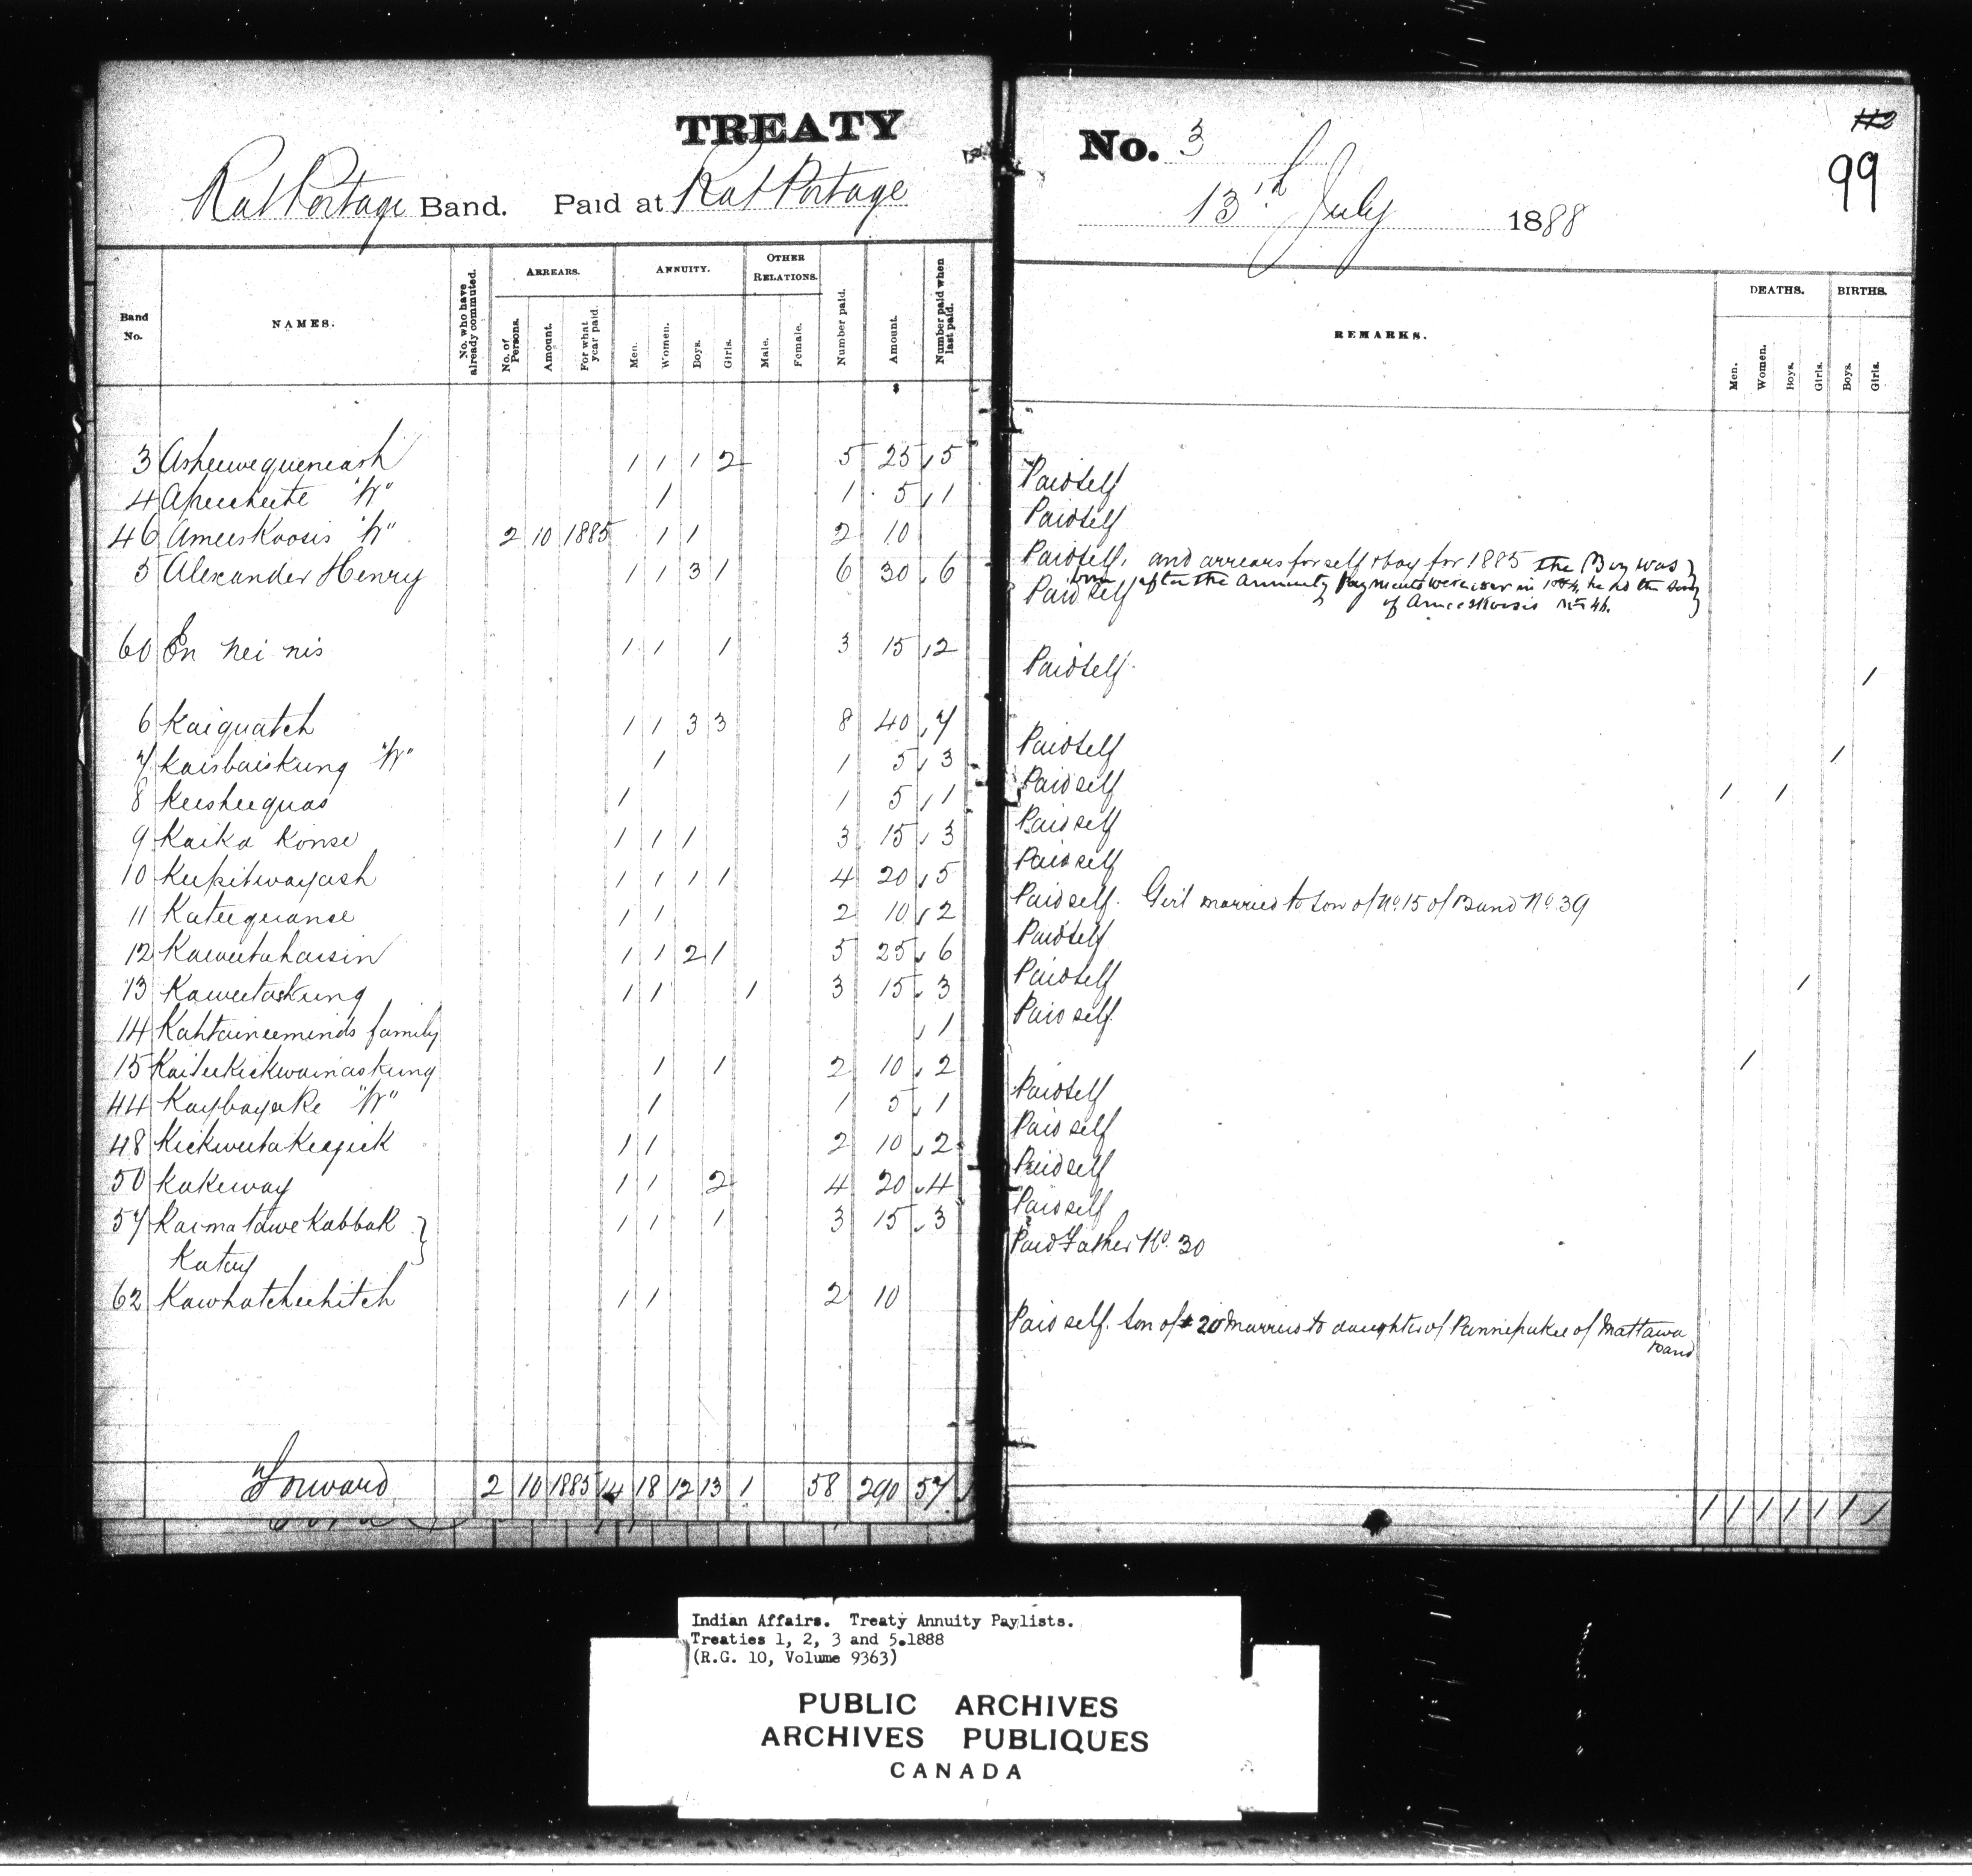 TREATY
Rat Portage Band. Paid at Rat Portage
Band No. NAMES. No. who have already commuted. ARREARS. No. of Persons. Amount. For what year paid. ANNUITY. Men. Women. Boys. Girls. OTHER RELATIONS. Male. Female. Number paid. Amount. Number paid when last paid.
$
3 Asheewequeneash 1 1 1 2 5 25 5
4 Apeecheete "W" 1 1 5 1
46 Ameeskoosis "W" 2 10 1885 1 1 2 10
5 Alexander Henry 1 1 3 1 6 30 6
60 En nei nis 1 1 1 3 15 2
6 Kaiquatch 1 1 3 3 8 40 7
7 Kaisbaiskung "W" 1 1 5 3
8 Keesheequas 1 1 5 1
9 Kaika Konse 1 1 1 3 15 3
10 Keepeitwayash 1 1 1 1 4 20 5
11 Kateequanse 1 1 2 10 2
12 Kaweetahaisin 1 1 2 1 5 25 6
13 Kaweetaskung 1 1 1 3 15 3
14 Kahtaineeminds family 1
15 Kaiteekeekwainaskung 1 1 2 10 2
44 Kaybayake "W" 1 1 5 1
48 Kickweetakesjick 1 1 2 10 2
50 Kakeway 1 1 2 4 20 4
57 Kaimatawekabbak } 1 1 1 3 15 3
Katuy
62 Kawhatcheehitch 1 1 2 10
Forward 2 10 1885 14 18 12 13 1 58 290 57
No. 3
112
99
13th July 1888
REMARKS. DEATHS. Men. Women. Boys. Girls. BIRTHS. Boys. Girls.
Paid self
Paid self
Paid self, and arrears for self & boy for 1885 the Boy was
born after the Annuity Payments were over in 1884, he is the son
Paid self
of Ameeskoosis No 46.
Paid self 1
Paid self 1
Paid self 1 1
Paid self
Paid self
Paid self. Girl married to son of No 15 of Band No. 39
Paid self
Paid self 1
Paid self
1
Paid self
Paid self
Paid self
Paid self
Paid Father No. 30
Paid self. Son of # 20 Married to daughter of Pannepukee of Mattawa
Band
1 1 1 1 1 1
Indian Affairs. Treaty Annuity Paylists.
Treaties 1, 2, 3 and 5.1888
(R.G. 10, Volume 9363)
PUBLIC ARCHIVES
ARCHIVES PUBLIQUES
CANADA